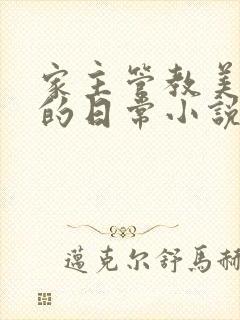 家主管教美
的日常小説
邁克尔舒馬赫